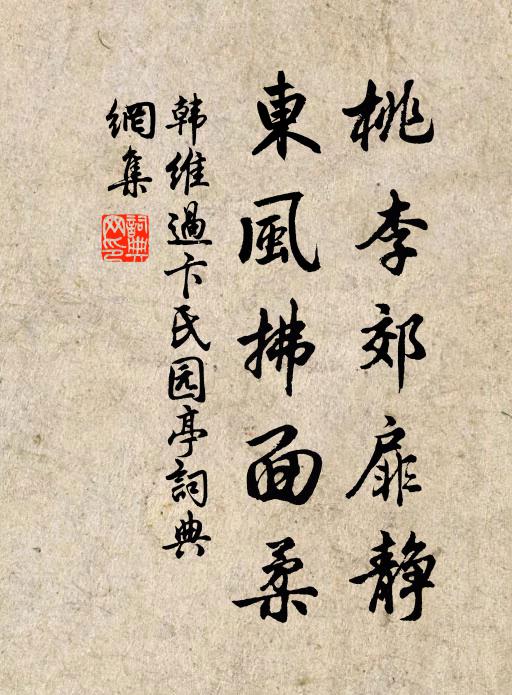 桃李郊扉静
東風拂面柔
韩維過卞氏园亭詞典
網集
詞典
网印